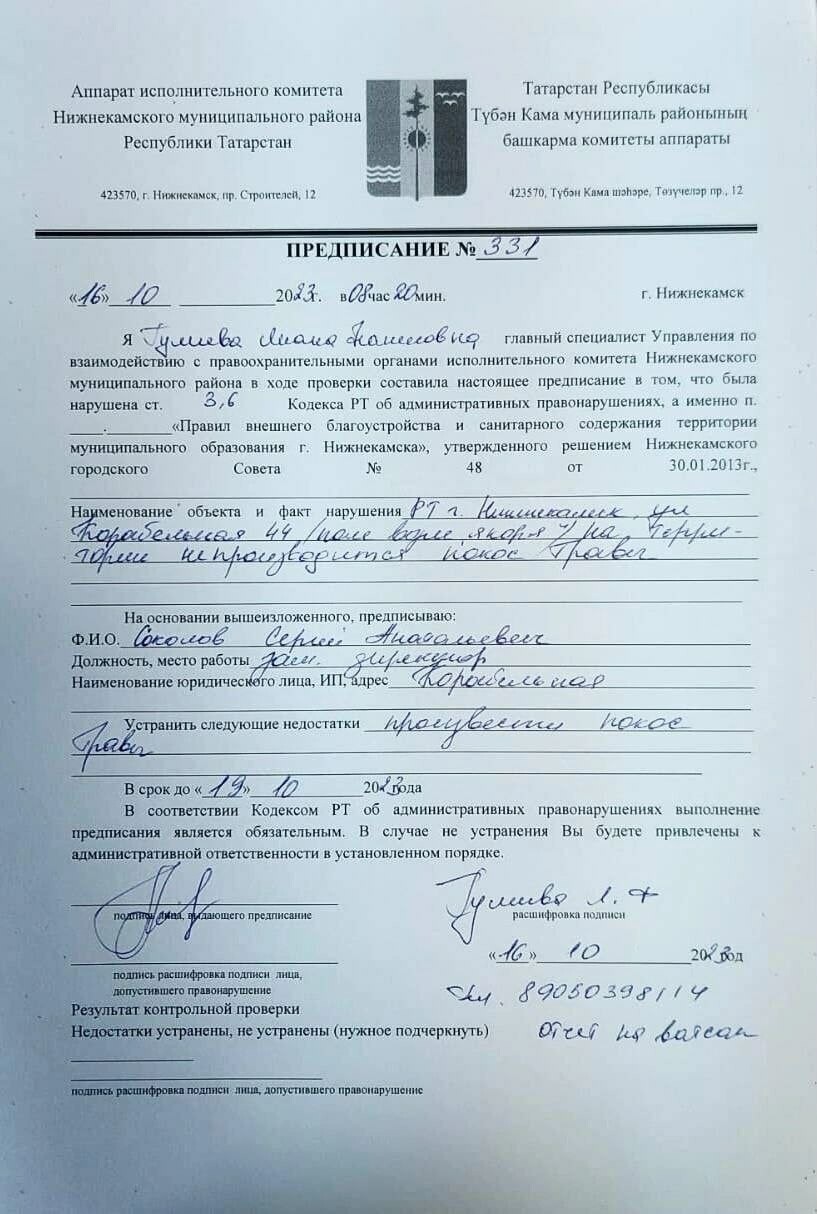 Аппарат исполнительного комитета
Нижнекамского муниципального района
Республики Татарстан
423570, г. Нижнекамск, пр. Строителей, 12
Татарстан Республикасы
Түбән Кама муниципаль районының
башкарма комитеты аппараты
423570, Түбән Кама шәһәре, Төзүчеләр пр., 12
ПРЕДПИСАНИЕ № 331
«16» 10 2023г. в 08 час 20 мин. г. Нижнекамск
Я главный специалист Управления по
взаимодействию с правоохранительными органами исполнительного комитета Нижнекамского
муниципального района в ходе проверки составила настоящее предписание в том, что была
нарушена ст. 3,6 Кодекса РТ об административных правонарушениях, а именно п.
____.________«Правил внешнего благоустройства и санитарного содержания территории
муниципального образования г. Нижнекамска», утвержденного решением Нижнекамского
городского Совета № 48 от 30.01.2013г.,
Наименование объекта и факт нарушения РТ г. Нижнекамск, ул
Корабельная 44 /поле возле якоря/ на терри-
тории не производится покос травы
На основании вышеизложенного, предписываю:
Ф.И.О. Соколов Сергей Анатольевич
Должность, место работы зам. директор
Наименование юридического лица, ИП, адрес Корабельная
Устранить следующие недостатки произвести покос
травы
В срок до «19» 10 2023 года
В соответствии Кодексом РТ об административных правонарушениях выполнение
предписания является обязательным. В случае не устранения Вы будете привлечены к
административной ответственности в установленном порядке.
подпись лица, выдающего предписание
расшифровка подписи
«16» 10 2023 год
подпись расшифровка подписи лица,
допустившего правонарушение
89050398114
Результат контрольной проверки
Недостатки устранены, не устранены (нужное подчеркнуть) отчет на ватсап
подпись расшифровка подписи лица, допустившего правонарушение